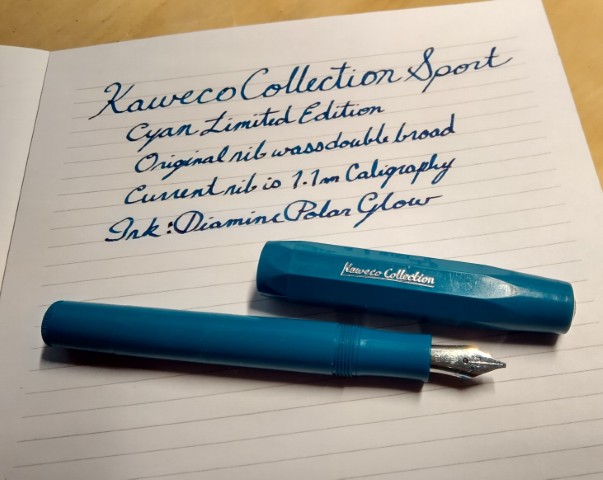 Kaweco Collection Sport
Cyan Limited Edition
Original nib was double broad
Current nib is 1.1mm Caligraphy
Ink: Diamine Polar Glow
Kaweco Collection